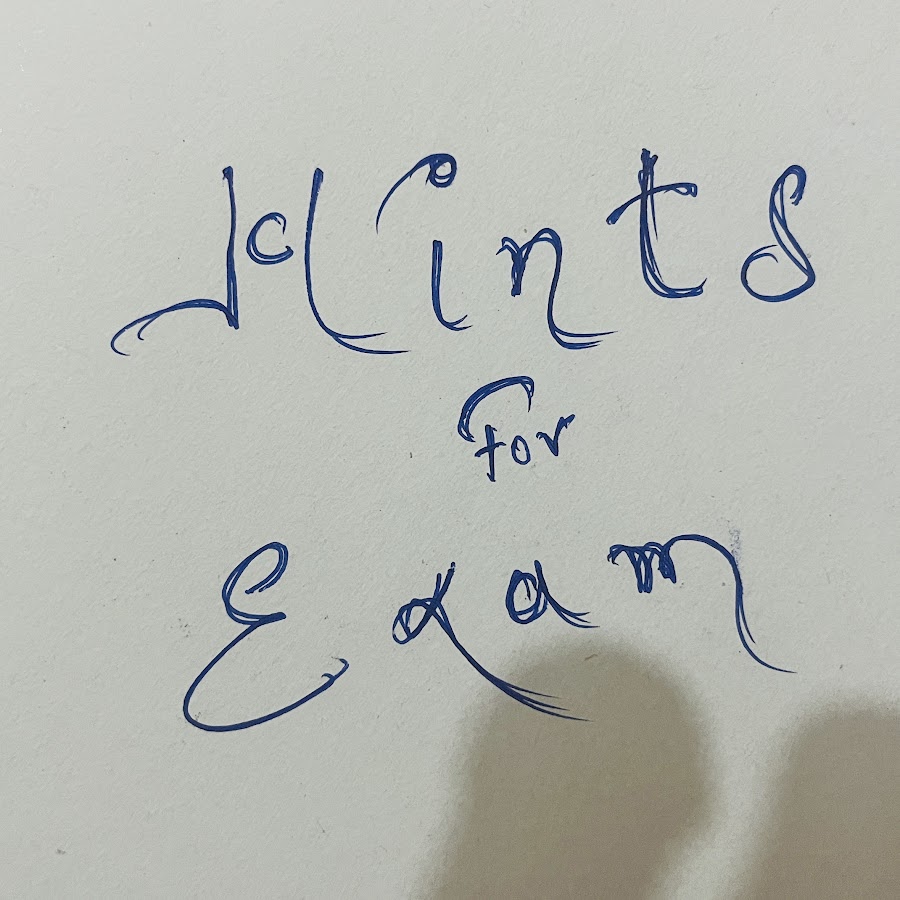 Hints
For
Exam